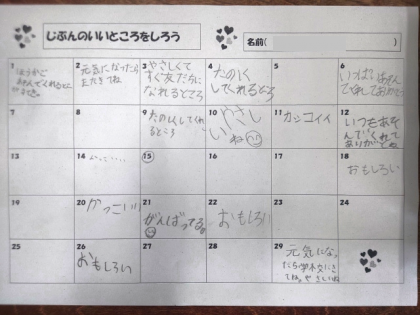 じぶんのいいところをしろう
名前(　　　)
1
2
元気になったら
またきてね
3
やさしくて
すぐ友だちに
なれるところ
4
たのしく
してくれるところ
5
6
7
8
9
たのしくしてくれ
るところ
10
やさしい
ね
11
カッコイイ
12
いつもあそ
んでくれて
ありがとね
13
14
15
16
17
18
おもしろい
19
20
かっこいい
21
がんばってる。
22
おもしろい
23
24
25
26
おもしろい
27
28
29
元気になっ
たら学校にき
てね。やさしいね